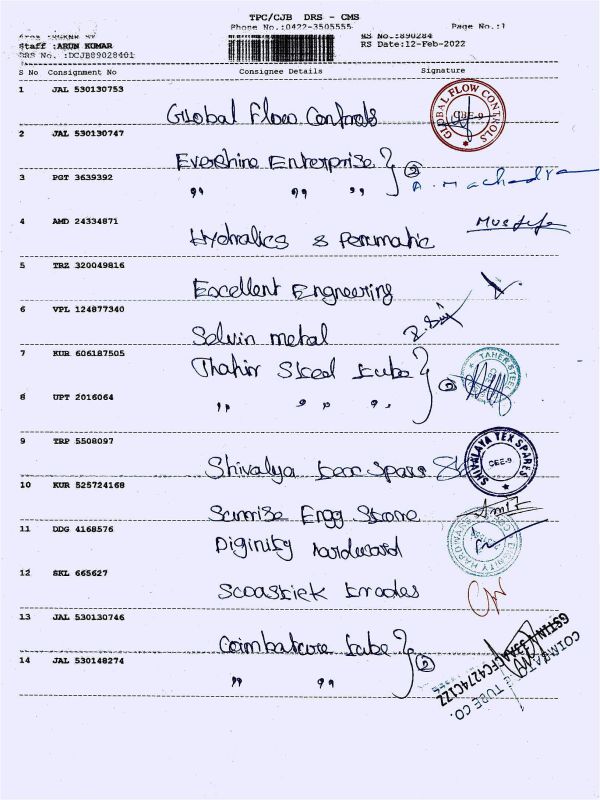 TPC/CJB DRS - CMS
Phone No.:0422-3505555 Page No.:1
Staff :ARUN KUMAR RS No.:890284
DRS No. :DCJB89028401 RS Date:12-Feb-2022
S No Consignment No Consignee Details Signature
1 JAL 530130753
Global Flow Controls
GLOBAL FLOW CONTROLS CBE-9
2 JAL 530130747
Evershine Enterprise 2
3 PGT 3639392
" " "
4 AMD 24334871
Hydralics & Penumatic
Mustafa
5 TRZ 320049816
Excellent Engneering
6 VPL 124877340
Selvin metal
7 KUR 606187505
Thahir Steel tube 2
TAHER STEEL
8 UPT 2016064
" " "
9 TRP 5508097
Shivalya tex spars
SHIVALAYA TEX SPARES CBE-9
10 KUR 525724168
Sunrise Engg Strone
11 DDG 4168576
Diginity hardward
DIGNITY HARDWARE
12 SKL 665627
Scoastick trades
13 JAL 530130746
Coimbatore tube 2
14 JAL 530148274
" "
COIMBATORE TUBE CO.